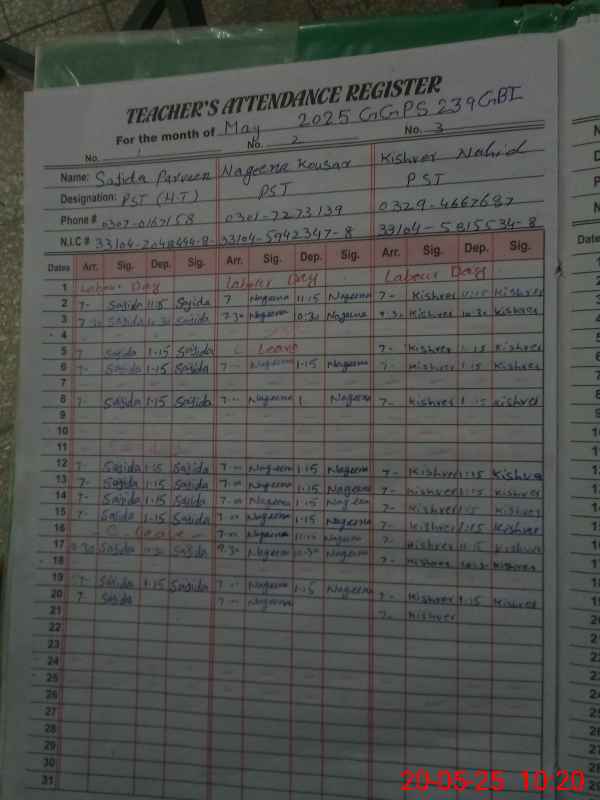 TEACHER'S ATTENDANCE REGISTER
For the month of May 2025 GGPS 239GBI
No. 1 No. 2 No. 3
Name: Sajida Parveen Nageena Kousar Kishver Nahid
Designation: PST (H.T) PST PST
Phone # 0307-0167158 0301-7273139 0329-4667687
N.I.C # 33104-2048494-8 33104-5942347-8 33104-5815534-8
Dates Arr. Sig. Dep. Sig. Arr. Sig. Dep. Sig. Arr. Sig. Dep. Sig.
1 Labour Day Labour Day Labour Day
2 7- Sajida 11:15 Sajida 7 Nageena 11:15 Nageena 7- Kishver 11:15 Kishver
3 7-30 Sajida 10:30 Sajida 7-30 Nageena 10:30 Nageena 7-30 Kishver 10:30 Kishver
4
5 7 Sajida 1-15 Sajida Leave 7- Kishver 1-15 Kishver
6 7- Sajida 1-15 Sajida 7-- Nageena 1-15 Nageena 7- Kishver 1-15 Kishver
7
8 7- Sajida 1-15 Sajida 7-- Nageena 1 Nageena 7- Kishver 1-15 Kishver
9
10
11
12 7- Sajida 1-15 Sajida 7-00 Nageena 1-15 Nageena 7- Kishver 1:15 Kishver
13 7- Sajida 1-15 Sajida 7-00 Nageena 1-15 Nageena 7- Kishver 1-15 Kishver
14 7- Sajida 1-15 Sajida 7-00 Nageena 1-15 Nageena 7- Kishver 1-15 Kishver
15 7- Sajida 1-15 Sajida 7-00 Nageena 1-15 Nageena 7- Kishver 1:15 Kishver
16 Leave 7-00 Nageena Nageena 7- Kishver 11-15 Kishver
17 9-30 Sajida Sajida 9-30 Nageena 10-30 Nageena 7- Kishver Kishver
18
19 7- Sajida 1-15 Sajida 7-- Nageena 1-15 Nageena 7- Kishver 1:15 Kishver
20 7- Sajida 7-- Nageena 7- Kishver
21
22
23
24
25
26
27
28
29
30
31
20-05-25 10:20